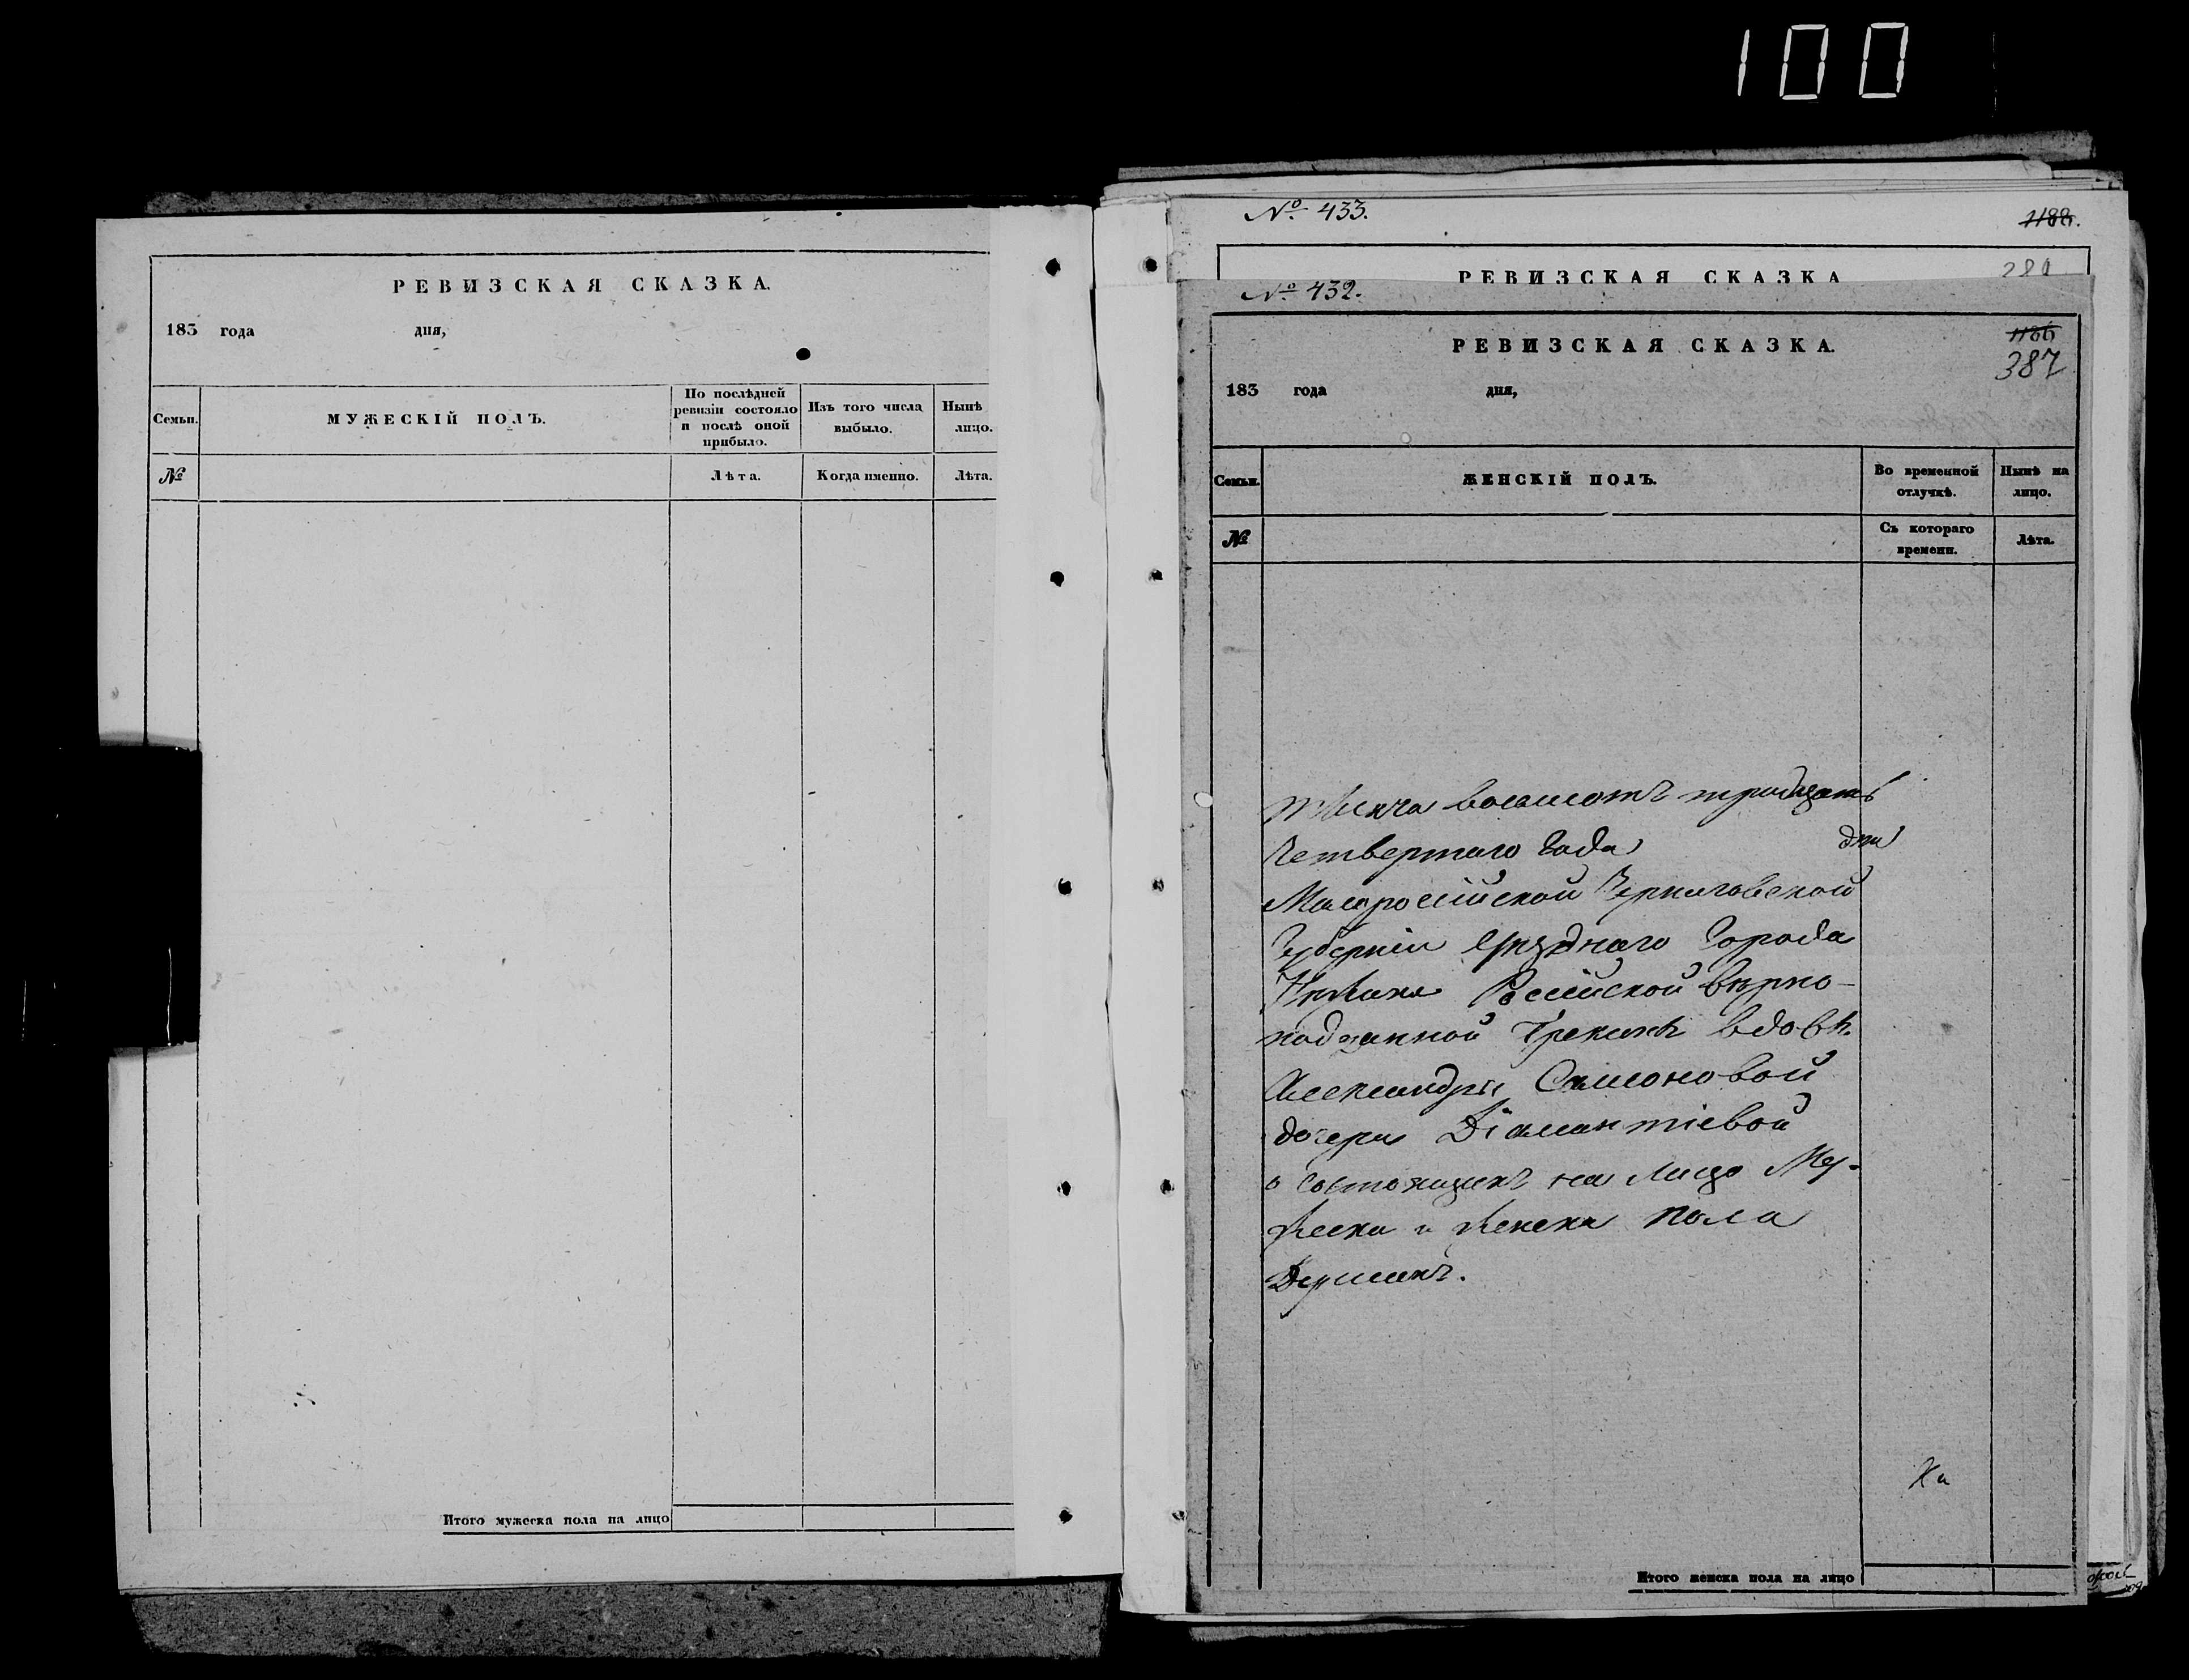 100
РЕВИЗСКАЯ СКАЗКА.
183 года дня,
Семьи.
МУЖЕСКІЙ ПОЛЪ.
По послѣдней ревизіи состояло и послѣ оной прибыло.
Изъ того числа выбыло.
Нынѣ лицо.
№
Лѣта.
Когда именно.
Лѣта.
Итого мужеска пола на лицо
№ 433.
1188.
РЕВИЗСКАЯ СКАЗКА
№ 432.
РЕВИЗСКАЯ СКАЗКА.
1186
387
183 года дня,
Семьи.
ЖЕНСКІЙ ПОЛЪ.
Во временной отлучкѣ.
Нынѣ на лицо.
№
Съ котораго времени.
Лѣта.
тысяча восемсотъ тридцать
Четвертаго Года дня
Малоросійской Черниговской
Губерніи Уѣзднаго Города
Нѣжина Російской вѣрно-
подданной Грекинѣ вдовѣ
Александры Самоновой
дочери Діамантіевой
о состоящихъ на лицо Му-
жеска и женска пола
Душахъ.
Итого женска пола на лицо